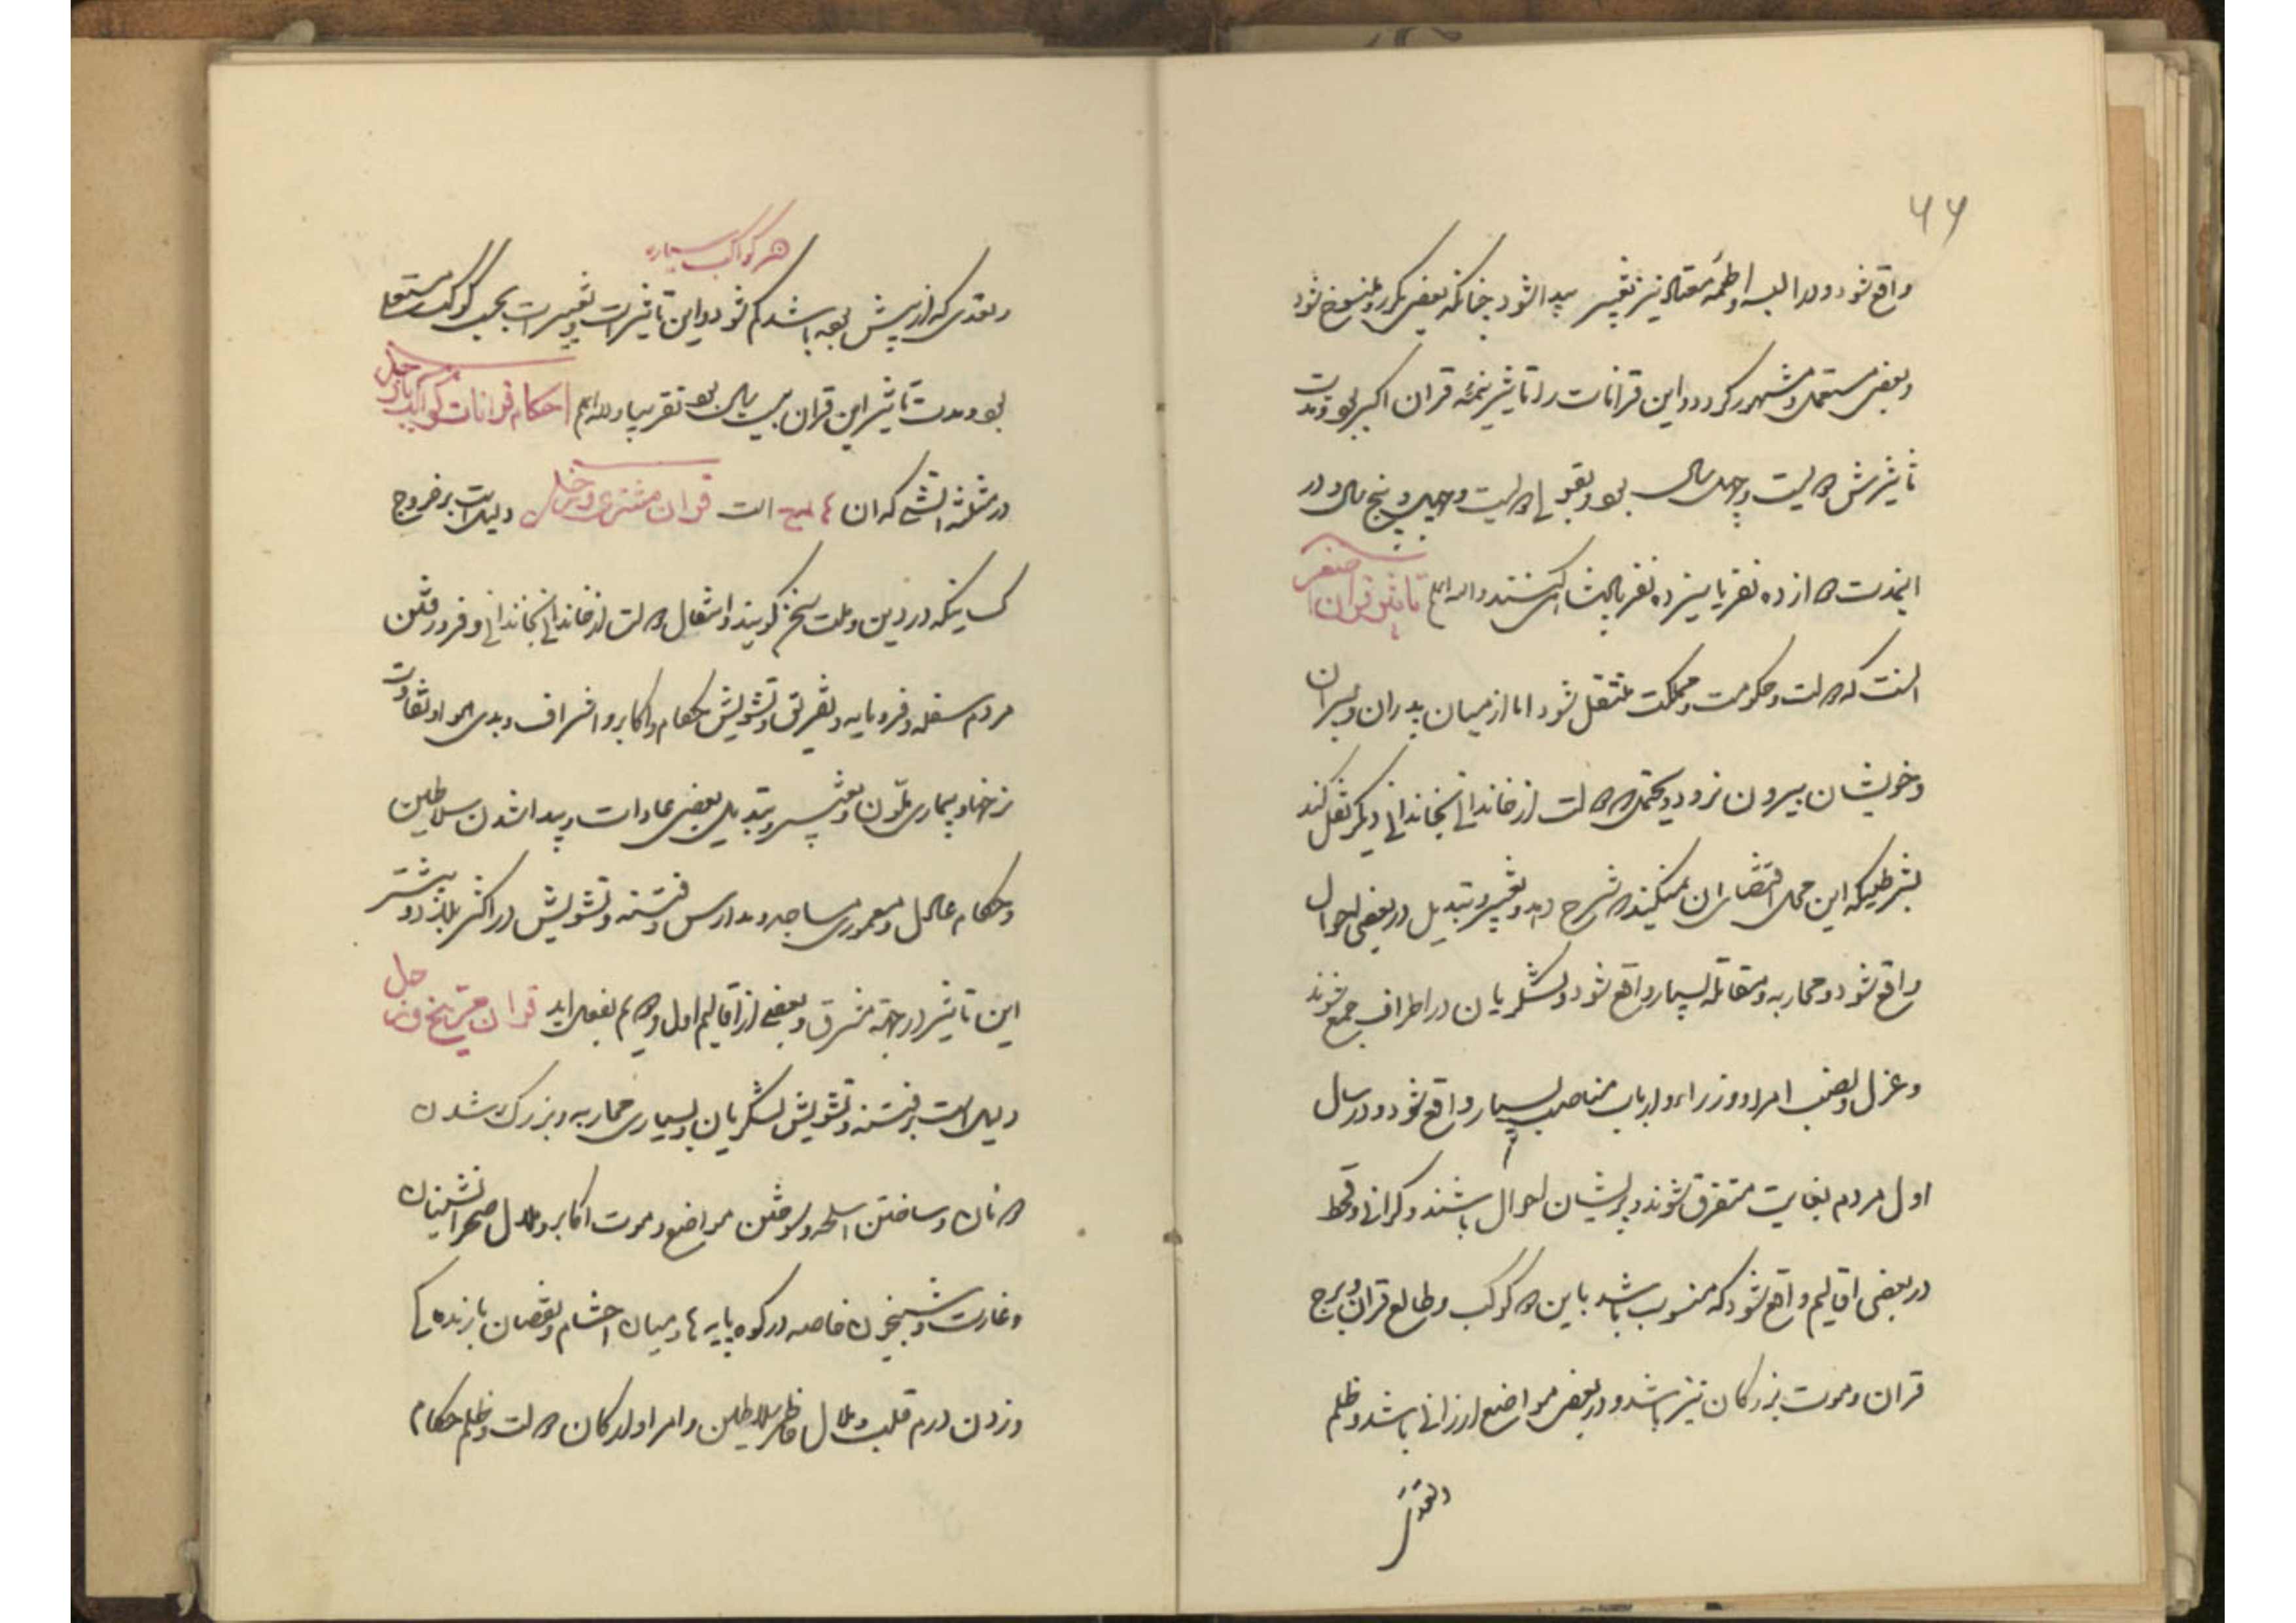 ۶۶
واقع شود و در البسه و اطعمه معتاد نیز تغییر پیدا شود چنانکه بعضی مکرر و منسوخ شود
و بعضی مستعمل و مشهور کردد و این قرانات را تاثیر تتمه قران اکبر بود و مدت
تاثیرش دویست و چهل سال بود و بقولی دویست و چهل و پنج سال و در
اینمدت از ده نفر یا سیزده نفر پادشاهی کنند والله اعلم تاثیر قران اصغر
انست که دولت و حکومت و مملکت منتقل شود اما از میان پدران و پسران
و خویشان بیرون نرود و یحتمل که دولت از خاندانی بخاندانی دیکر نقل کند
بشرطیکه این محل اقتضای ان کند شرح دهد و تغییر و تبدیل در بعضی احوال
واقع شود و محاربه و مقاتله بسیار واقع شود و لشکریان در اطراف جمع شوند
و عزل و نصب امرا و وزراء و ارباب مناصب بسیار واقع شود و در سال
اول مردم بغایت متفرق شوند و پریشان احوال باشند و کرانی و قحط
در بعضی اقالیم واقع شود که منسوب باشد باین دو کوکب و طالع قران و برج
قران و موت بزرکان نیز باشد و در بعضی مواضع ارزانی باشد و ظلم
هر کواکب سیاره
و تعدی که از پیش بوده باشد کم شود و این تاثیرات و تغییرات بحسب کوکب مستعلی
بود و مدت تاثیر این قران بیست سال بود تقریبا والله اعلم احکام قرانات کواکب با زحل
در مثلثه اتشی که ان است قران مشتری و زحل دلیل است بر خروج
کسانیکه در دین و ملت سخن کویند و انتقال دولت از خاندانی بخاندانی و فرو رفتن
مردم سفله و فرومایه و تفریق و تشویش حکام و اکابر و اشراف و بدی هوا و تفاوت
نرخها و بیماری تلون و تغییر و تبدیل بعضی عادات و پیدا شدن سلاطین
و حکام عادل و معموری مساجد و مدارس و فتنه و تشویش در اکثر بلاد و بیشتر
این تاثیر در جهة مشرق و بعضی از اقالیم اول و دویم بفعل اید قران مریخ و زحل
دلیل است بر فتنه و تشویش لشکریان و بسیاری محاربه و بزرک شدن
دونان و ساختن اسلحه و سوختن مواضع و موت اکابر و ملال صحرانشینان
و غارت و شبیخون خاصه در کوه پایه ها و میان احشام و نقصان بازنده کی
و زدن درم قلب و ملال خاطر سلاطین و امرا و ارکان دولت و ظلم حکام